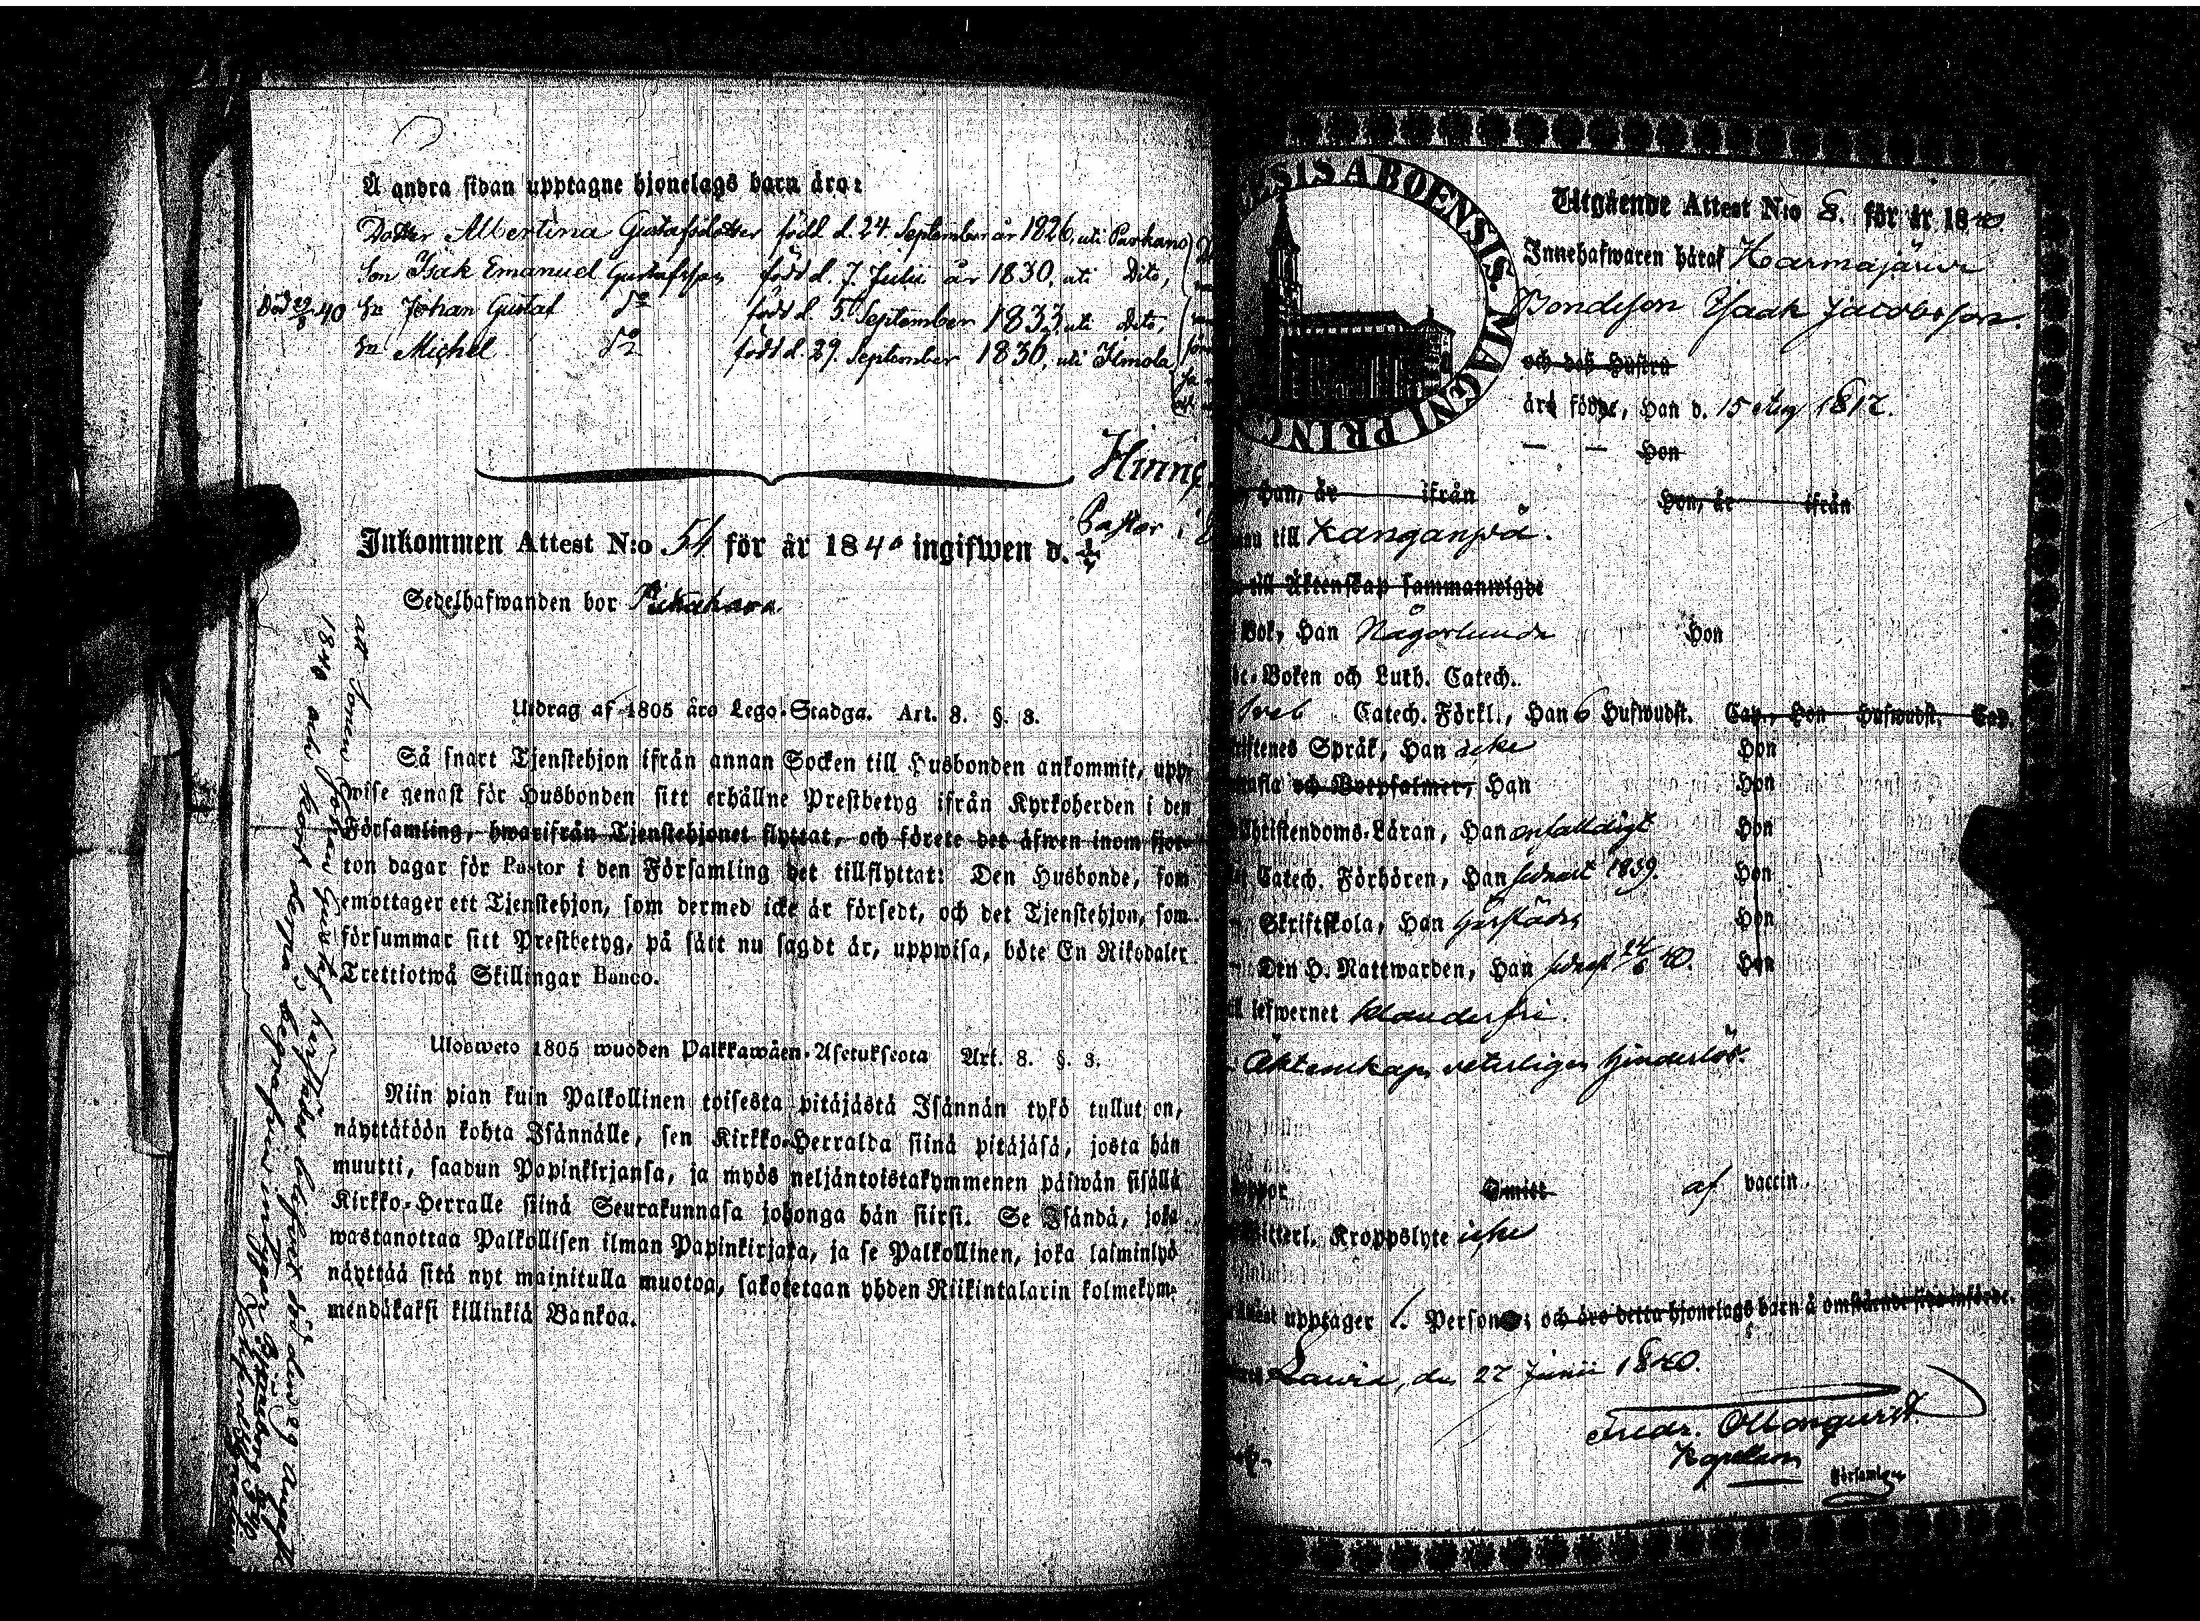 Å andra sidan upptagne hjonelags barn äro:
Dotter Albertina Gustafsdotter född d. 24 September år 1826, uti Parkano
Son Isak Emanuel Gustafsson född d. 7 Julii år 1830, uti Dito,
Död 29/8 40 Sn Johan Gustaf do född d. 5 September 1833, uti Dito,
Sn Michel do född d. 29 September 1836, uti Ilmola
Pastor i
Inkommen Attest N:o 54 för år 1840 ingifwen d.
Sedelhafwanden bor
Utdrag af 1805 års Lego-Stadga. Art. 8. §. 3.
Så snart Tjenstehjon ifrån annan Socken till Husbonden ankommit, upp-
wise genast för Husbonden sitt erhållne Prestbetyg ifrån Kyrkoherden i den
Församling, hwarifrån Tjenstehjonet flyttat, och förete det äfwen inom fjor-
ton dagar för Pastor i den Församling det tillflyttat: Den Husbonde, som
emottager ett Tjenstehjon, som dermed icke är försedt, och det Tjenstehjon, som
försummar sitt Prestbetyg, på sätt nu sagdt är, uppwisa, böte En Riksdaler
Trettiotwå Skillingar Banco.
Ulosweto 1805 wuoden Palkkawäen-Asetuksesta Art. 8. §. 3.
Niin pian kuin Palkollinen toisesta pitäjästä Isännän tykö tullut on,
näyttäköön kohta Isännälle, sen Kirkko-Herralda siinä pitäjäsä, josta hän
muutti, saadun Papinkirjansa, ja myös neljäntoistakymmenen päiwän sisällä
Kirkko-Herralle siinä Seurakunnasa johonga hän siirsi. Se Isändä, joka
wastanottaa Palkollisen ilman Papinkirjata, ja se Palkollinen, joka laiminlyö
näyttää sitä nyt mainitulla muotoa, sakotetaan yhden Riikintalarin kolmekym-
mendäkaksi killinkiä Bankoa.
at Sonen Johan Gustaf härstädes blifvit död den 29 Augusti
1840 och
ESIS ABOENSIS. MAGNI PRINC
Utgående Attest N:o 8. för år 1840.
Innehafwaren häraf Karmajärvi
Bondeson Isaak Jacobsson.
och deß hustru
äro födde, Han d. 15 Aug 1817.
— — Hon
Han, är ifrån Hon, är ifrån
till Kanganpää.
till Äktenskap sammanwigde
Bok, Han Någorlunda Hon
Boken och Luth. Catech.
Catech. Förkl., Han 6 Hufwudst. Cap., Hon Hufwudst. Cap.
Språk, Han icke Hon
och Botpsalmer, Han Hon
Christendoms-Läran, Han enfaldigt Hon
Catech. Förhören, Han sednast 1839. Hon
Skriftskola, Han härstädes Hon
Den H. Nattwarden, Han sednast 24/6 40. Hon
lefwernet klanderfri.
Äktenskap veterligen hinderlös.
af vaccin.
Kroppslyte icke
upptager 1. Person; och äro detta hjonelags barn å omstående sida införde.
Lavia, den 27 Junii 1840.
Fredr.
Kapellan
Församling